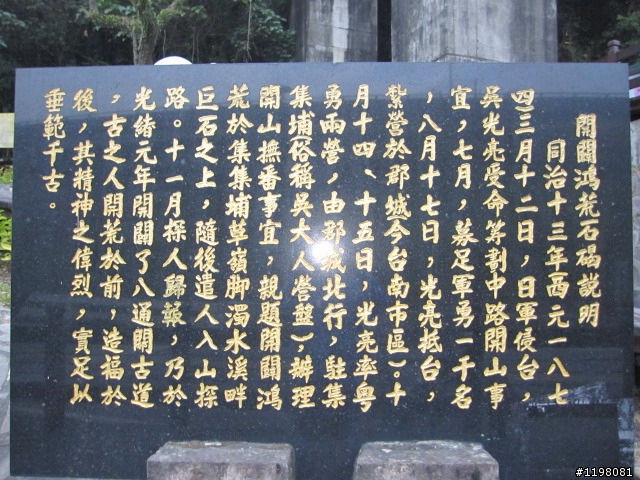 開闢鴻荒石碣說明
同治十三年西元一八七
四三月十二日，日軍侵台，
吳光亮受命籌劃中路開山事
宜，七月，募足軍勇一千名
，八月十七日，光亮抵台，
紮營於郡城今台南市區），十
月十四、十五日，光亮率粵
勇兩營，由郡城北行，駐集
集埔俗稱吳大人營盤），辦理
開山撫番事宜，親題開闢鴻
荒於集集埔草嶺腳濁水溪畔
巨石之上，隨後遣人入山探
路。十一月探人歸報，乃於
光緒元年開闢了八通關古道
，古之人開荒於前，造福於
後，其精神之偉烈，實足以
垂範千古。
#1198081